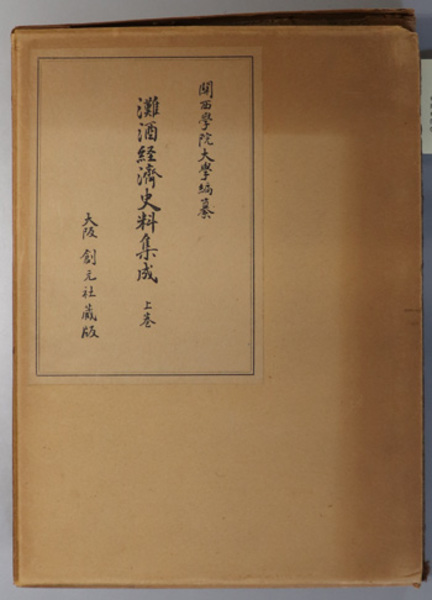 関西學院大學編纂
灘酒経濟史料集成 上巻
大阪 創元社蔵版